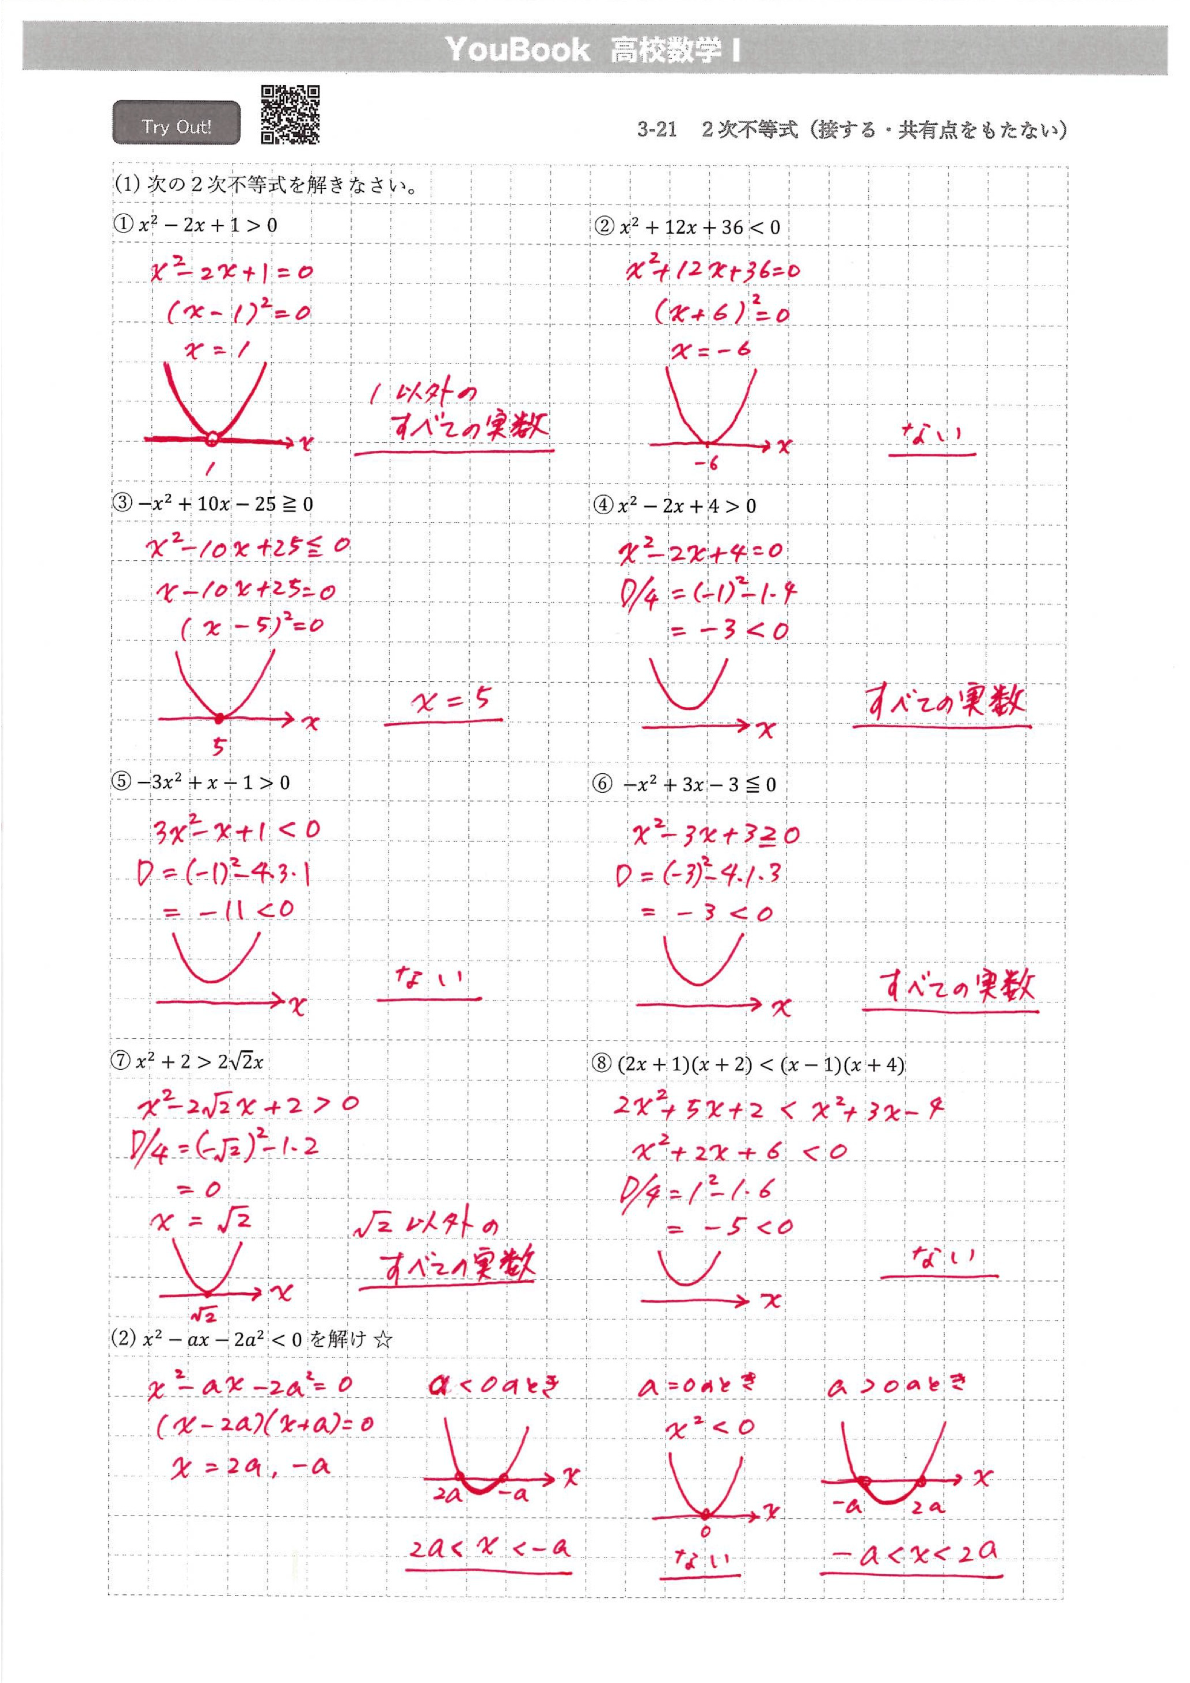 YouBook 高校数学 I
Try Out!
3-21 2次不等式（接する・共有点をもたない）
(1) 次の2次不等式を解きなさい。
① x² − 2x + 1 > 0
x² − 2x + 1 = 0
(x − 1)² = 0
x = 1
1以外の
すべての実数
x
1
② x² + 12x + 36 < 0
x² + 12x + 36 = 0
(x + 6)² = 0
x = −6
x
−6
ない
③ −x² + 10x − 25 ≧ 0
x² − 10x + 25 ≦ 0
x − 10x + 25 = 0
(x − 5)² = 0
x
5
x = 5
④ x² − 2x + 4 > 0
x² − 2x + 4 = 0
D/4 = (−1)² − 1・4
= −3 < 0
x
すべての実数
⑤ −3x² + x − 1 > 0
3x² − x + 1 < 0
D = (−1)² − 4・3・1
= −11 < 0
x
ない
⑥ −x² + 3x − 3 ≦ 0
x² − 3x + 3 ≧ 0
D = (−3)² − 4・1・3
= −3 < 0
x
すべての実数
⑦ x² + 2 > 2√2x
x² − 2√2x + 2 > 0
D/4 = (−√2)² − 1・2
= 0
x = √2
√2以外の
すべての実数
x
√2
⑧ (2x + 1)(x + 2) < (x − 1)(x + 4)
2x² + 5x + 2 < x² + 3x − 4
x² + 2x + 6 < 0
D/4 = 1² − 1・6
= −5 < 0
x
ない
(2) x² − ax − 2a² < 0 を解け ☆
x² − ax − 2a² = 0
(x − 2a)(x + a) = 0
x = 2a, −a
a < 0のとき
x
2a −a
2a < x < −a
a = 0のとき
x² < 0
x
0
ない
a > 0のとき
x
−a 2a
−a < x < 2a